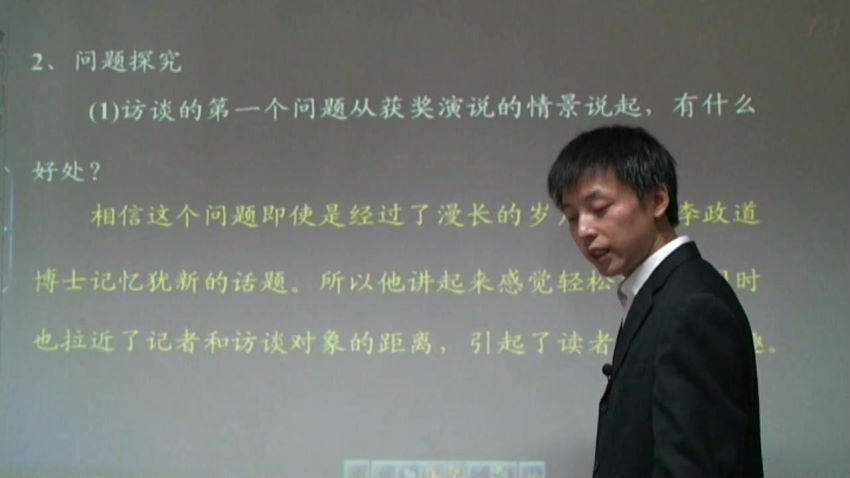 2、问题探究
(1)访谈的第一个问题从获奖演说的情景说起，有什么
好处？
相信这个问题即使是经过了漫长的岁 李政道
博士记忆犹新的话题。所以他讲起来感觉轻松 时
也拉近了记者和访谈对象的距离，引起了读者 趣。